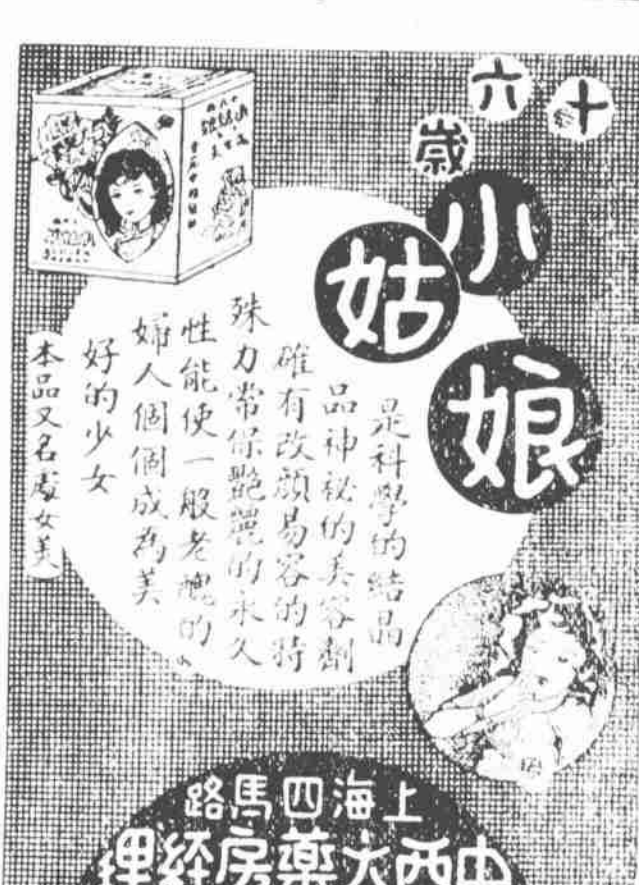 十六歲
小姑娘
是科學的結晶
品神秘的美容劑
確有改顏易容的特
殊力常保艷麗的永久
性能使一般老醜的
婦人個個成為美
好的少女
（本品又名處女美）
上海四馬路
中西大藥房經理